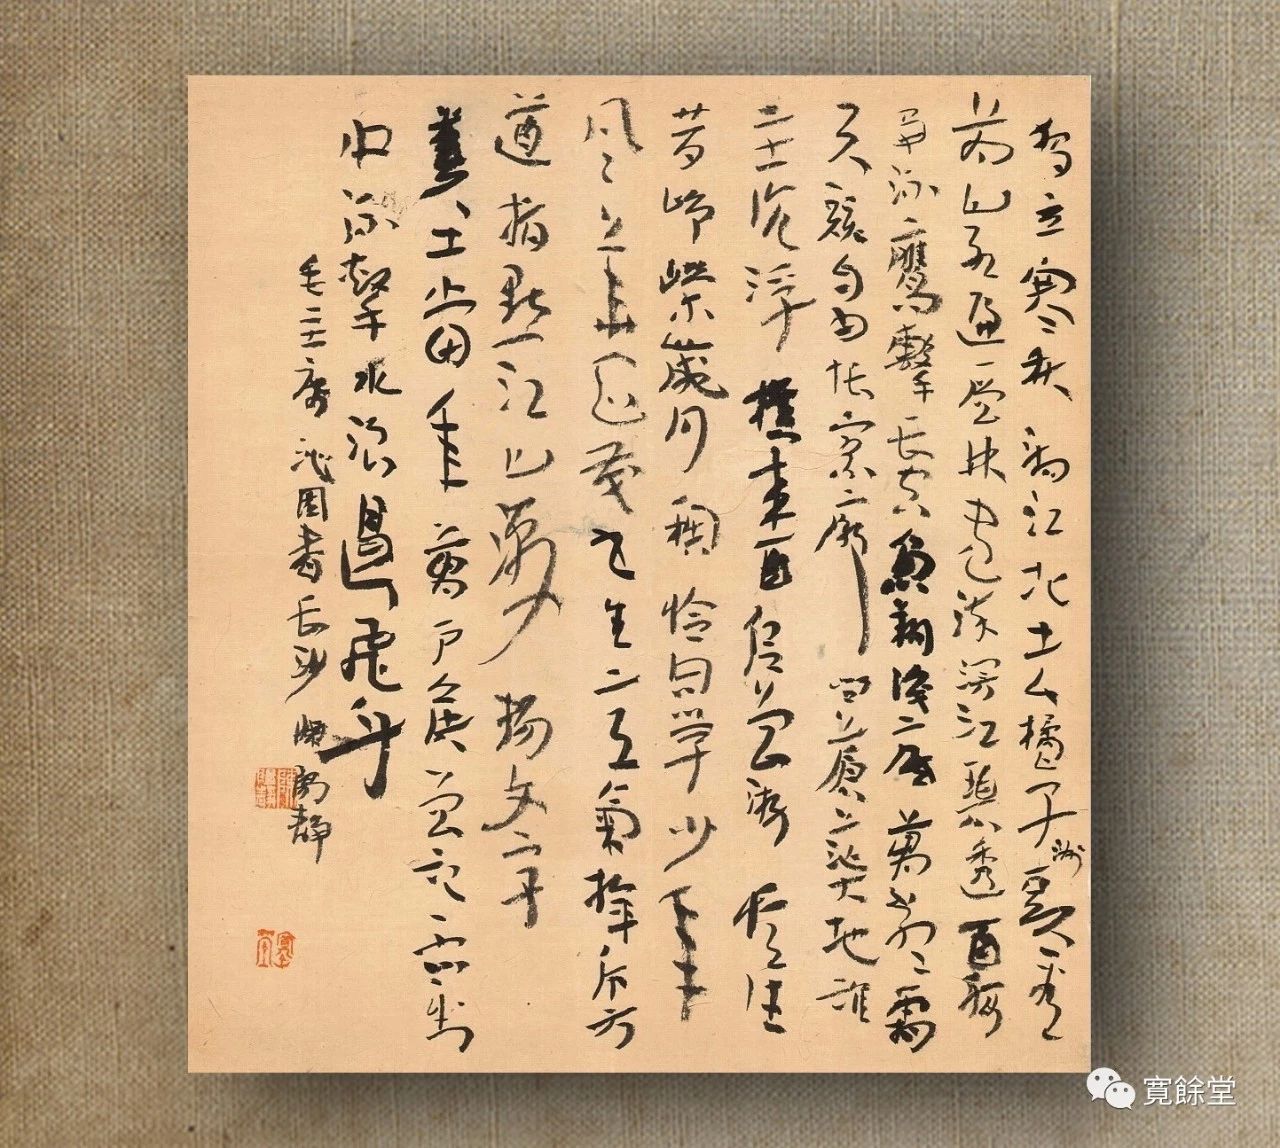 独立寒秋湘江北去橘子洲頭看
萬山红遍层林尽染漫江碧透百舸
争流鷹擊長空魚翔淺底萬类霜
天競自由悵寥廓問蒼茫大地誰
主沉浮攜來百侣曾游憶往
昔崢嶸歲月稠恰同學少年
風華正茂書生意氣揮斥方
遒指點江山激揚文字
糞土當年萬户侯曾記否到
中流擊水浪遏飛舟
毛主席沁園春長沙 靜
寬餘堂